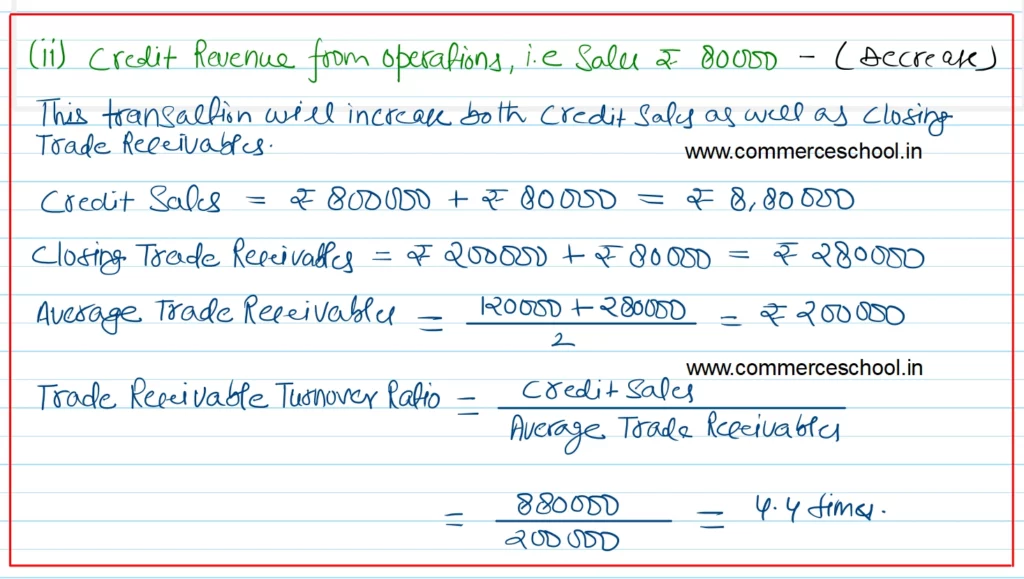 (ii) Credit Revenue from operations, i.e Sales ₹ 80000 - (Decrease)
This transaction will increase both Credit Sales as well as Closing
Trade Receivables.
www.commerceschool.in
Credit Sales = ₹ 800000 + ₹ 80000 = ₹ 8,80000
Closing Trade Receivables = ₹ 200000 + ₹ 80000 = ₹ 280000
Average Trade Receivables = 120000 + 280000 / 2 = ₹ 200000
www.commerceschool.in
Trade Receivable Turnover Ratio = Credit Sales / Average Trade Receivables
= 880000 / 200000 = 4.4 times.